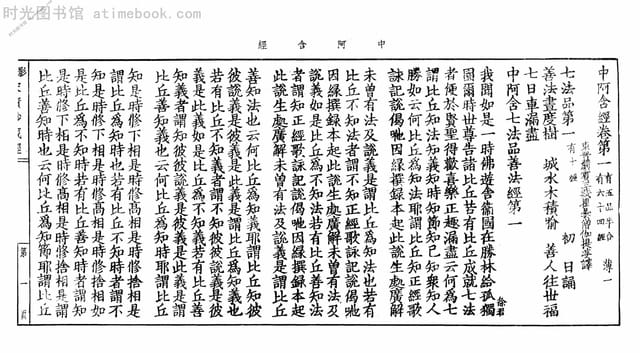 时光图书馆 - atimebook.com
中阿含經
中阿含經卷第一 有五品半合 有六十四經 薄一
東晉罽賓三藏瞿曇僧伽提婆譯
七法品第一 有十經 初一日誦
善法晝度樹 城水木積喻 善人往世福
七日車漏盡
中阿含七法品善法經第一
我聞如是一時佛遊舍衞國在勝林給孤獨
園爾時世尊告諸比丘若有比丘成就七法
者便於賢聖得歡喜樂正趣漏盡云何爲七
謂比丘知法知義知時知節知己知衆知人
勝如云何比丘爲知法耶謂比丘知正經歌
詠記說偈咃因緣撰録本起此說生處廣解
未曾有法及說義是謂比丘爲知法也若有
比丘不知法者謂不知正經歌詠記說偈咃
因緣撰録本起此說生處廣解未曾有法及
說義如是比丘爲不知法若有比丘善知法
者謂知正經歌詠記說偈咃因緣撰録本起
此說生處廣解未曾有法及說義是謂比丘
善知法也云何比丘爲知義耶謂比丘知彼
彼說義是彼義是此義是謂比丘爲知義也
若有比丘不知義者謂不知彼彼說義是彼
義是此義如是比丘爲不知義若有比丘善
知義者謂知彼彼說義是彼義是此義是謂
比丘善知義也云何比丘爲知時耶謂比丘
知是時修下相是時修高相是時修捨相是
謂比丘爲知時也若有比丘不知時者謂不
知是時修下相是時修高相是時修捨相如
是比丘爲不知時若有比丘善知時者謂知
是時修下相是時修高相是時修捨相是謂
比丘善知時也云何比丘爲知節耶謂比丘
影宋磧砂藏經
第一頁